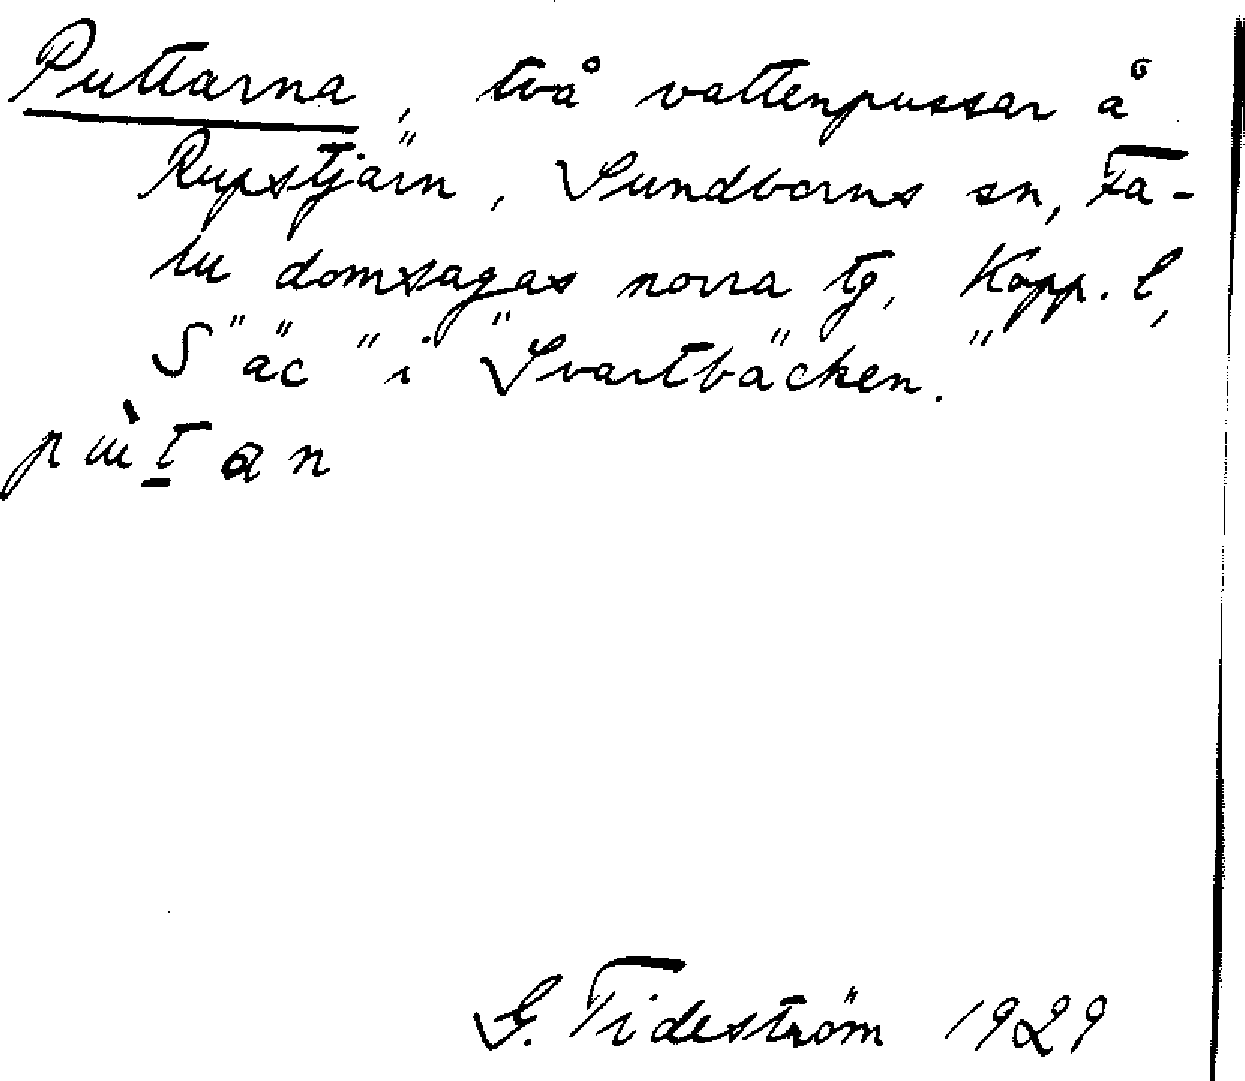 Puttarna, två vattenpussar å
Rupstjärn, Sundborns sn, Fa-
lu domsagas norra tg, Kopp. l,
S "äc" i "Svartbäcken."
G. Tideström 1929